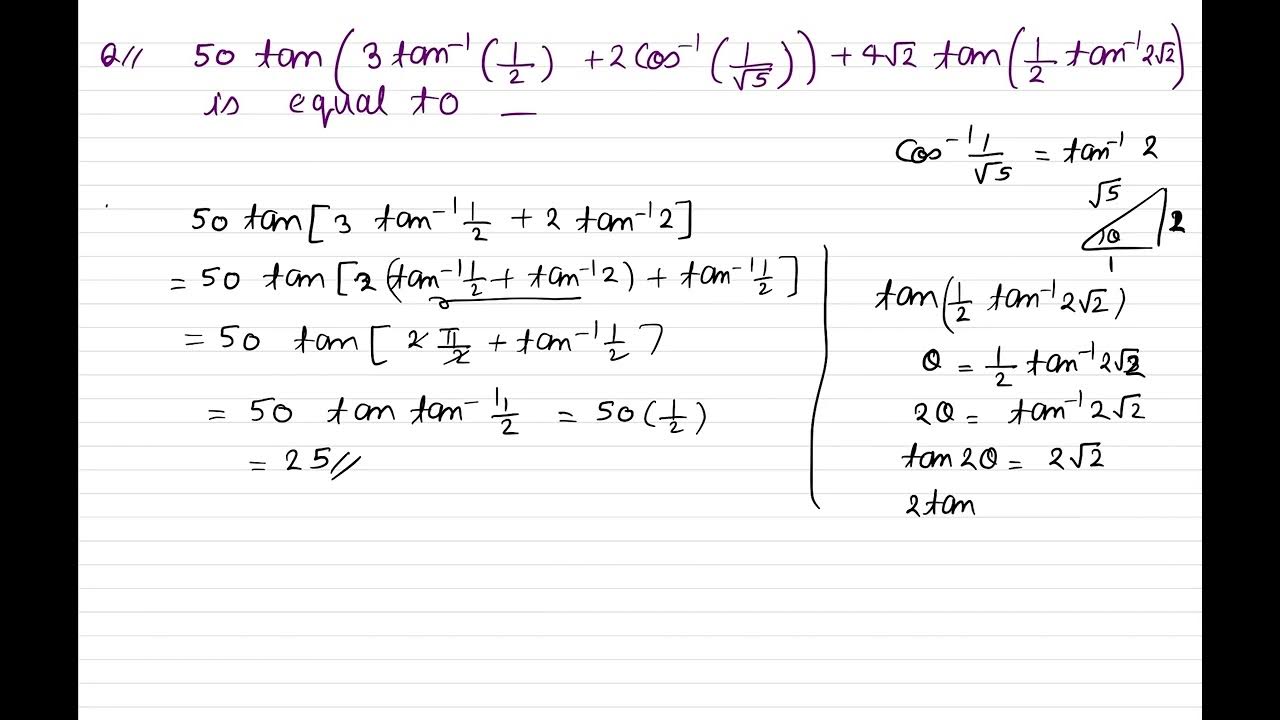 Q// 50 tan(3 tan⁻¹(1/2) + 2 Cos⁻¹(1/√5)) + 4√2 tan(1/2 tan⁻¹2√2)
is equal to __
50 tan[3 tan⁻¹1/2 + 2 tan⁻¹2]
= 50 tan[2(tan⁻¹1/2 + tan⁻¹2) + tan⁻¹1/2]
= 50 tan[2 π/2 + tan⁻¹1/2]
= 50 tan tan⁻¹1/2 = 50(1/2)
= 25//
Cos⁻¹1/√5 = tan⁻¹2
√5
2
θ
1
tan(1/2 tan⁻¹2√2)
θ = 1/2 tan⁻¹2√2
2θ = tan⁻¹2√2
tan2θ = 2√2
2tan